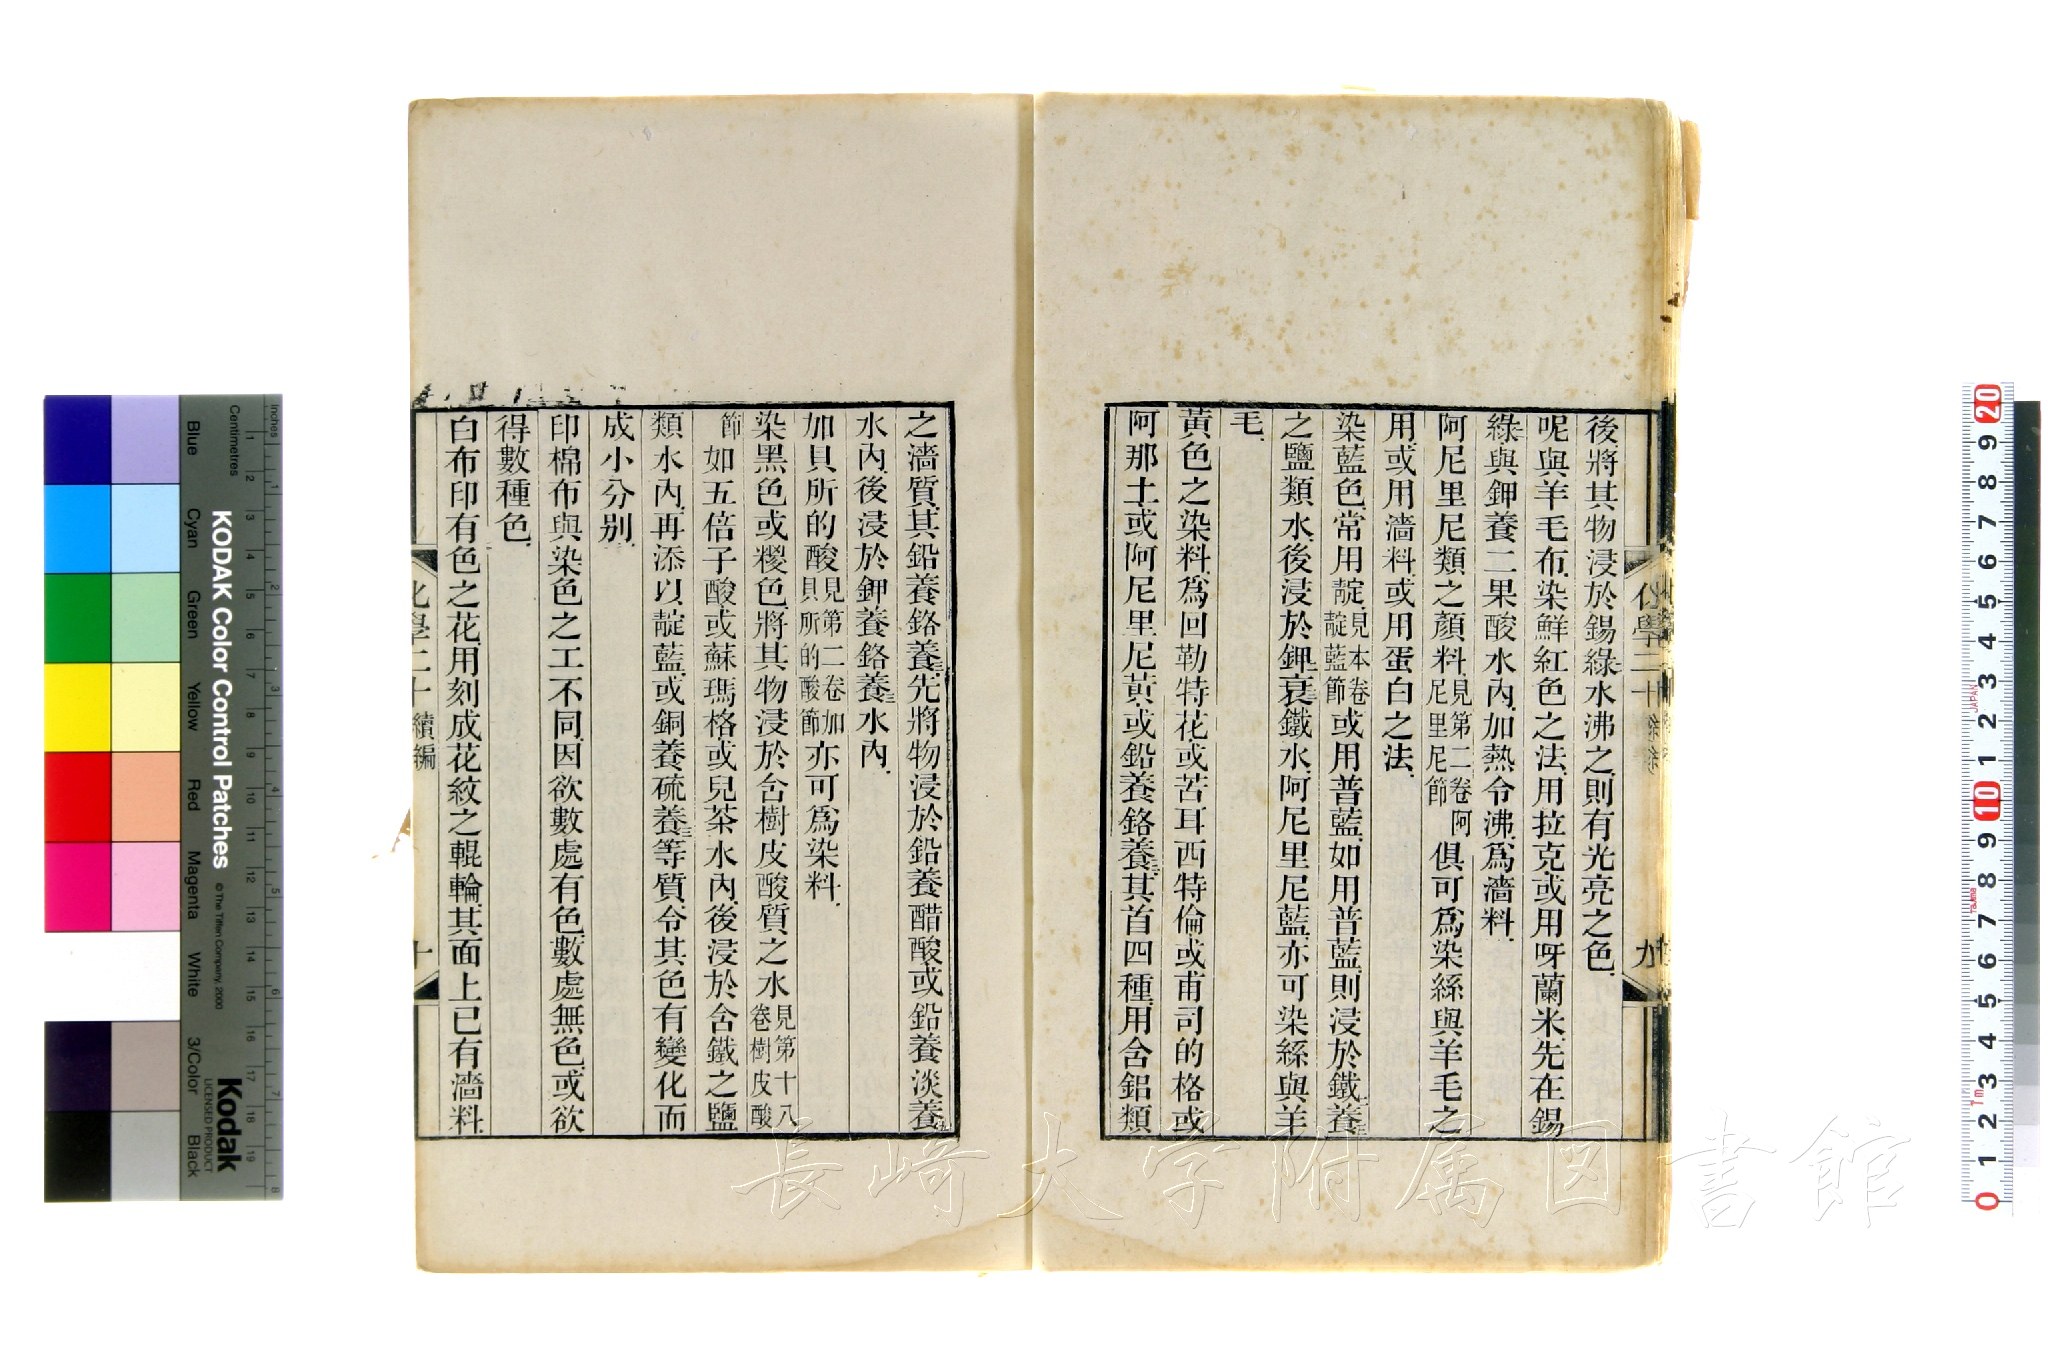 後將其物浸於錫綠水沸之則有光亮之色
呢與羊毛布染鮮紅色之法用拉克或用呀蘭米先在錫
綠與鉀養二果酸水內加熱令沸爲濇料
阿尼里尼類之顏料見第二卷阿尼里尼節俱可爲染絲與羊毛之
用或用濇料或用蛋白之法
染藍色常用靛見本卷靛藍節或用普藍如用普藍則浸於鐵養三
之鹽類水後浸於鉀二衰鐵水阿尼里尼藍亦可染絲與羊
毛
黃色之染料爲回勒特花或苦耳西特倫或甫司的格或
阿那土或阿尼里尼黃或鉛養鉻養三其首四種用含鋁類
化學二十
九
之濇質其鉛養鉻養三先將物浸於鉛養醋酸或鉛養淡養五
水內後浸於鉀養鉻養三水內
加貝所的酸見第二卷加貝所的酸節亦可爲染料
染黑色或櫻色將其物浸於含樹皮酸質之水見第十八卷樹皮酸
節如五倍子酸或蘇瑪格或兒茶水內後浸於含鐵之鹽
類水內再添以靛藍或銅養硫養三等質令其色有變化而
成小分別
印棉布與染色之工不同因欲數處有色數處無色或欲
得數種色
白布印有色之花用刻成花紋之輥輪其面上已有濇料
化學二十 續編
十
長崎大学附属図書館
KODAK Color Control Patches
© The Tiffen Company, 2000
Kodak
LICENSED PRODUCT
Inches
Centimetres
Blue
Cyan
Green
Yellow
Red
Magenta
White
3/Color
Black